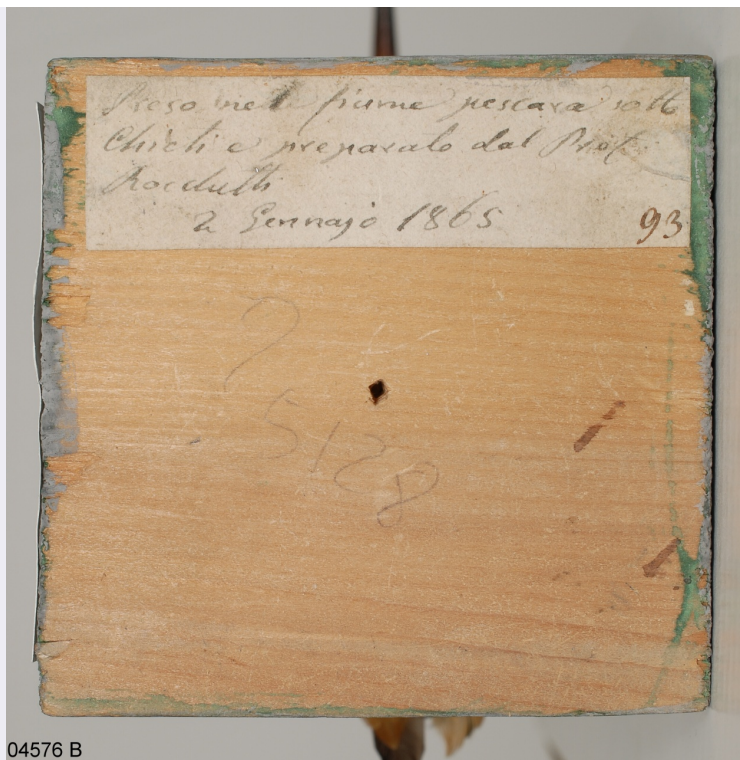 Preso nel fiume pescara sotto
Chieti e preparato dal Prof.
2 Gennajo 1865
93
5128
04576 B